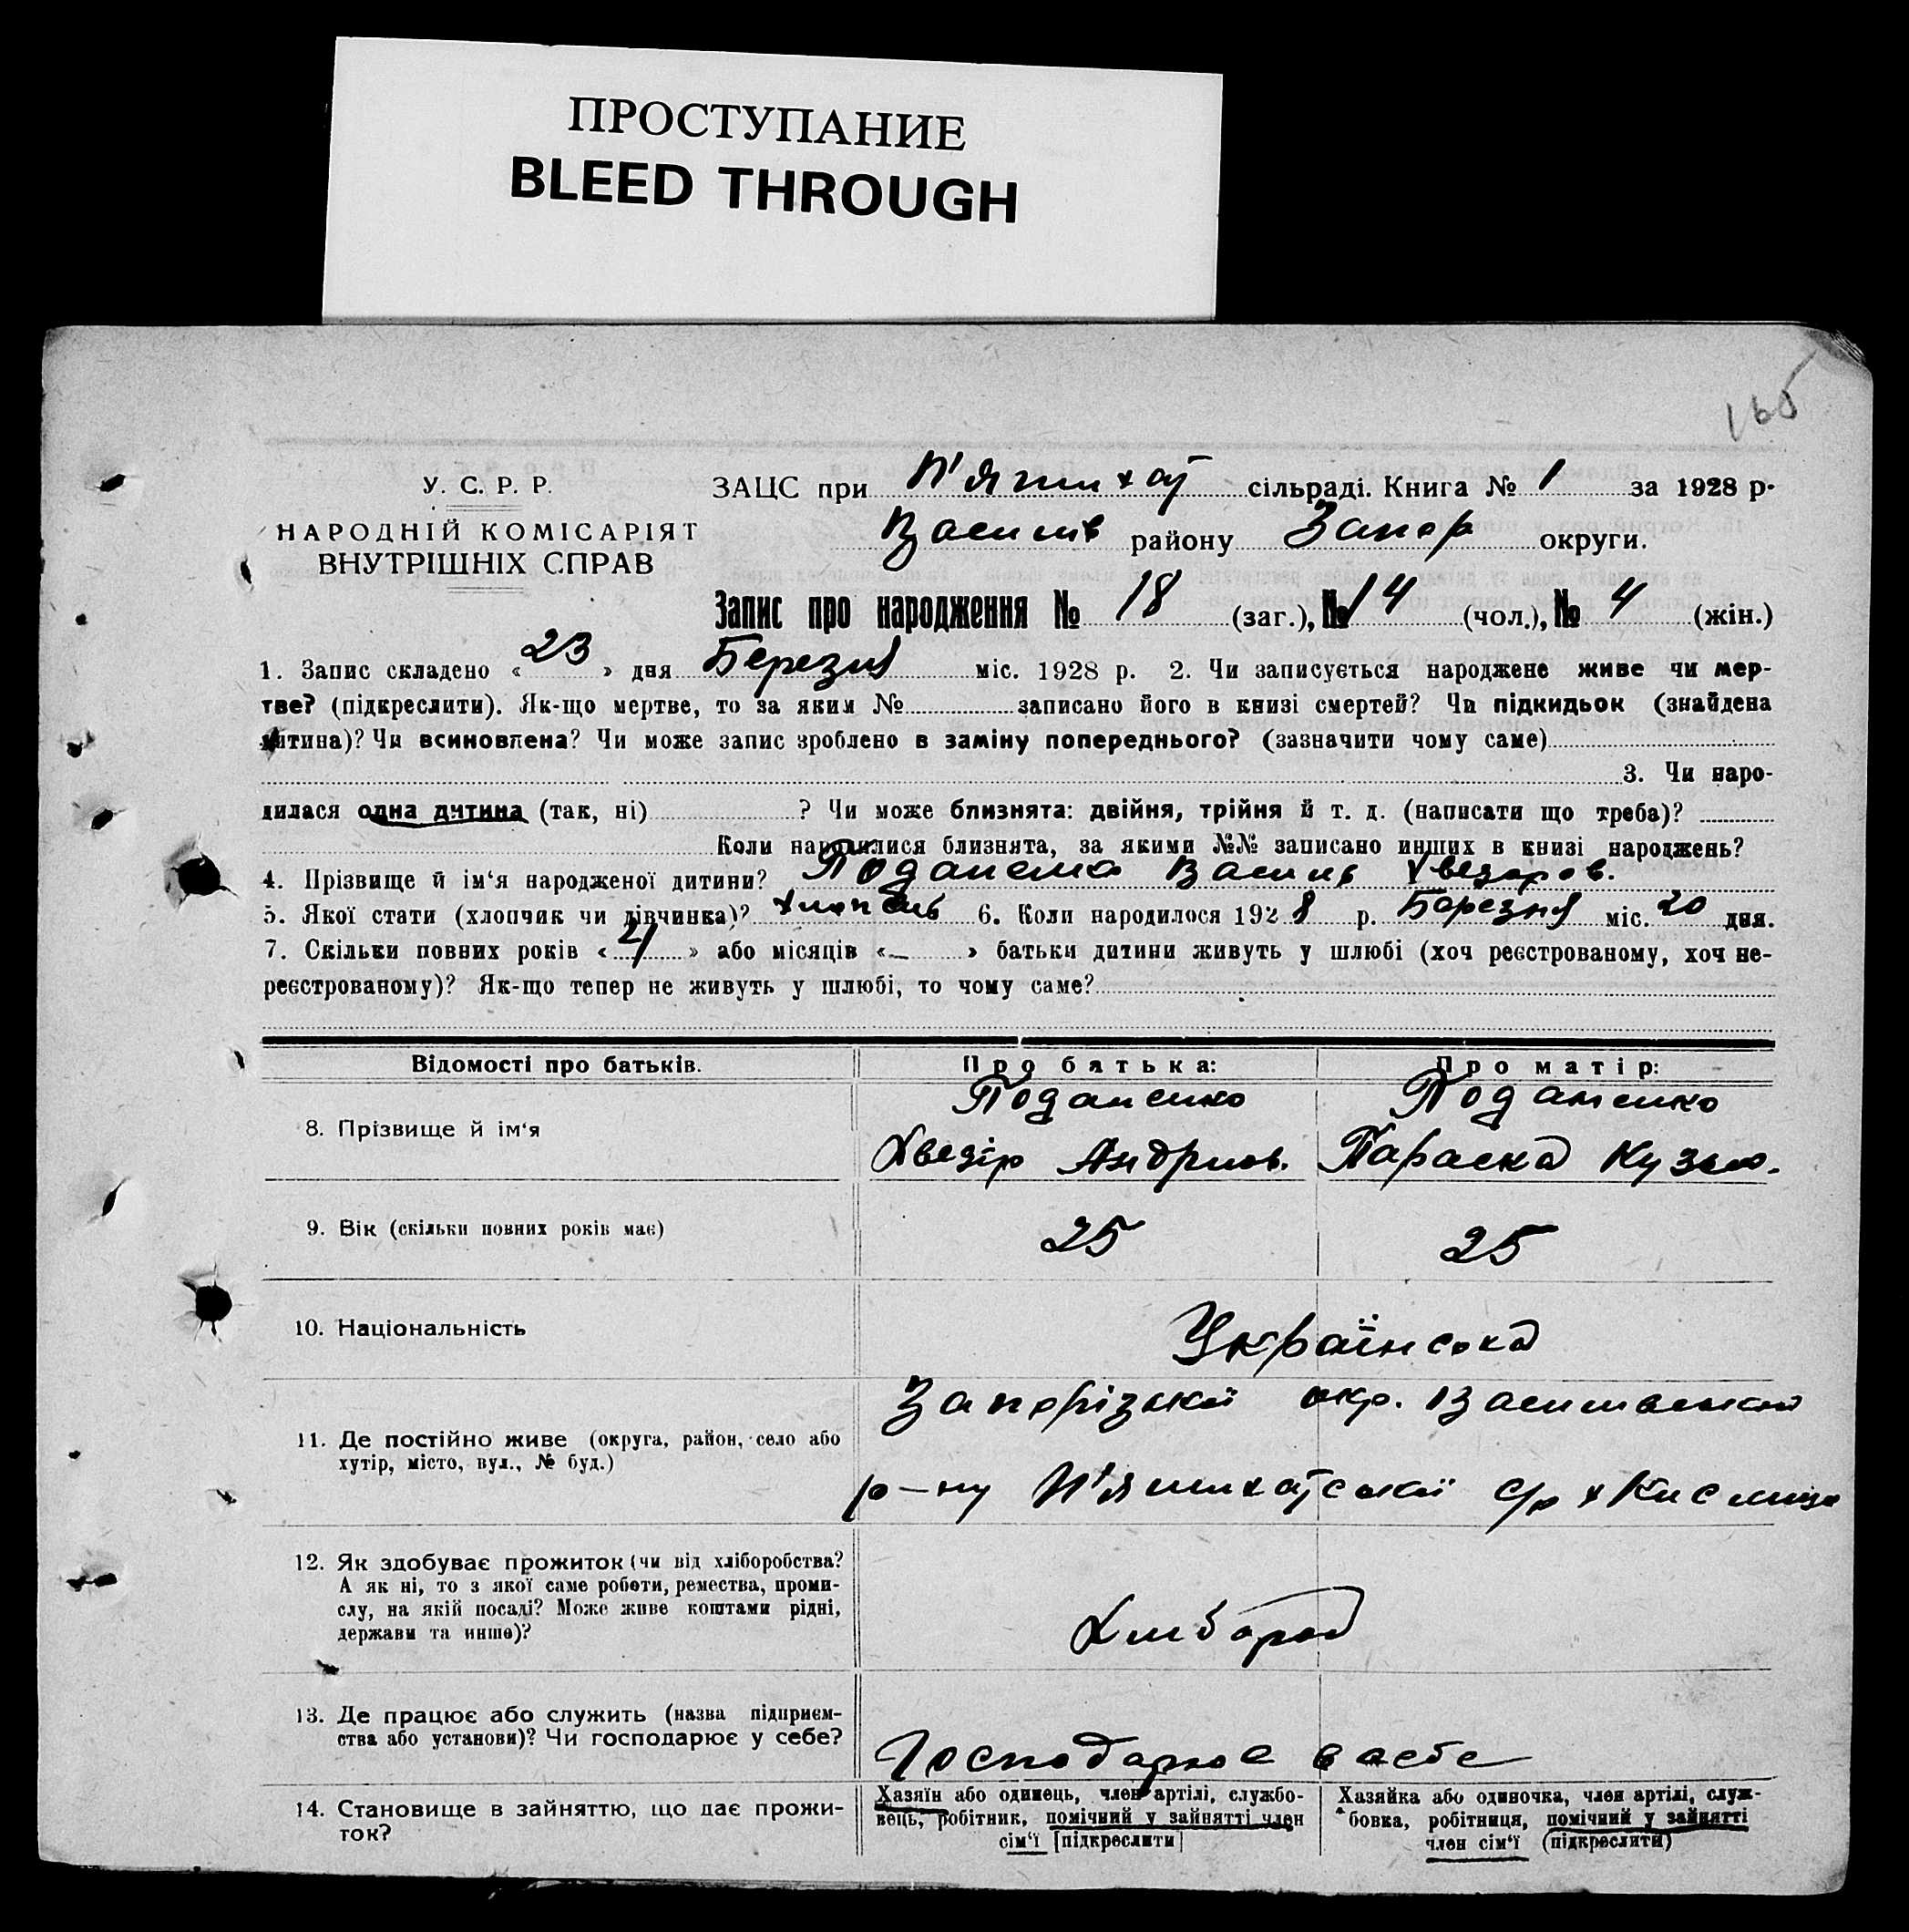 ПРОСТУПАНИЕ
BLEED THROUGH
165
У. С. Р. Р.
НАРОДНІЙ КОМІСАРІЯТ
ВНУТРІШНІХ СПРАВ
ЗАЦС при П'ятихат сільраді. Книга № 1 за 1928 р.
Василів району Запор округи.
Запис про народження № 18 (заг.), № 14 (чол.), № 4 (жін.)
1. Запис складено « 23 » дня Березня міс. 1928 р. 2. Чи записується народжене живе чи мер-
тве? (підкреслити). Як-що мертве, то за яким № записано його в книзі смертей? Чи підкидьок (знайдена
дитина)? Чи всиновлена? Чи може запис зроблено в заміну попереднього? (зазначити чому саме)
3. Чи наро-
дилася одна дитина (так, ні) ? Чи може близнята: двійня, трійня й т. д. (написати що треба)?
Коли народилися близнята, за якими №№ записано инших в книзі народжень?
4. Прізвище й ім‘я народженої дитини? Василь Хведоров.
5. Якої стати (хлопчик чи дівчинка)? хлопець 6. Коли народилося 1928 р. Березня міс. 20 дня.
7. Скільки повних років « 4 » або місяців « — » батьки дитини живуть у шлюбі (хоч реєстрованому, хоч не-
реєстрованому)? Як-що тепер не живуть у шлюбі, то чому саме?
Відомості про батьків. Про батька: Про матір:
8. Прізвище й ім‘я
Хведір Андриов. Параска Кузьм.
9. Вік (скільки повних років має) 25 25
10. Національність Українська
11. Де постійно живе (округа, район, село або
хутір, місто, вул., № буд.)
Запорізької окр. Василівського
р-ну П'ятихатської с/р х
12. Як здобуває прожиток (чи від хліборобства?
А як ні, то з якої саме роботи, ремества, проми-
слу, на якій посаді? Може живе коштами рідні,
держави та инше)?
Хлібороб
13. Де працює або служить (назва підприєм-
ства або установи)? Чи господарює у себе?
Господарює в себе
14. Становище в зайняттю, що дає прожи-
ток?
Хазяїн або одинець, член артілі, службо-
вець, робітник, помічний у зайнятті член
сім‘ї [підкреслити]
Хазяйка або одиночка, член артілі, служ-
бовка, робітниця, помічний у зайнятті
член сім‘ї (підкреслити)